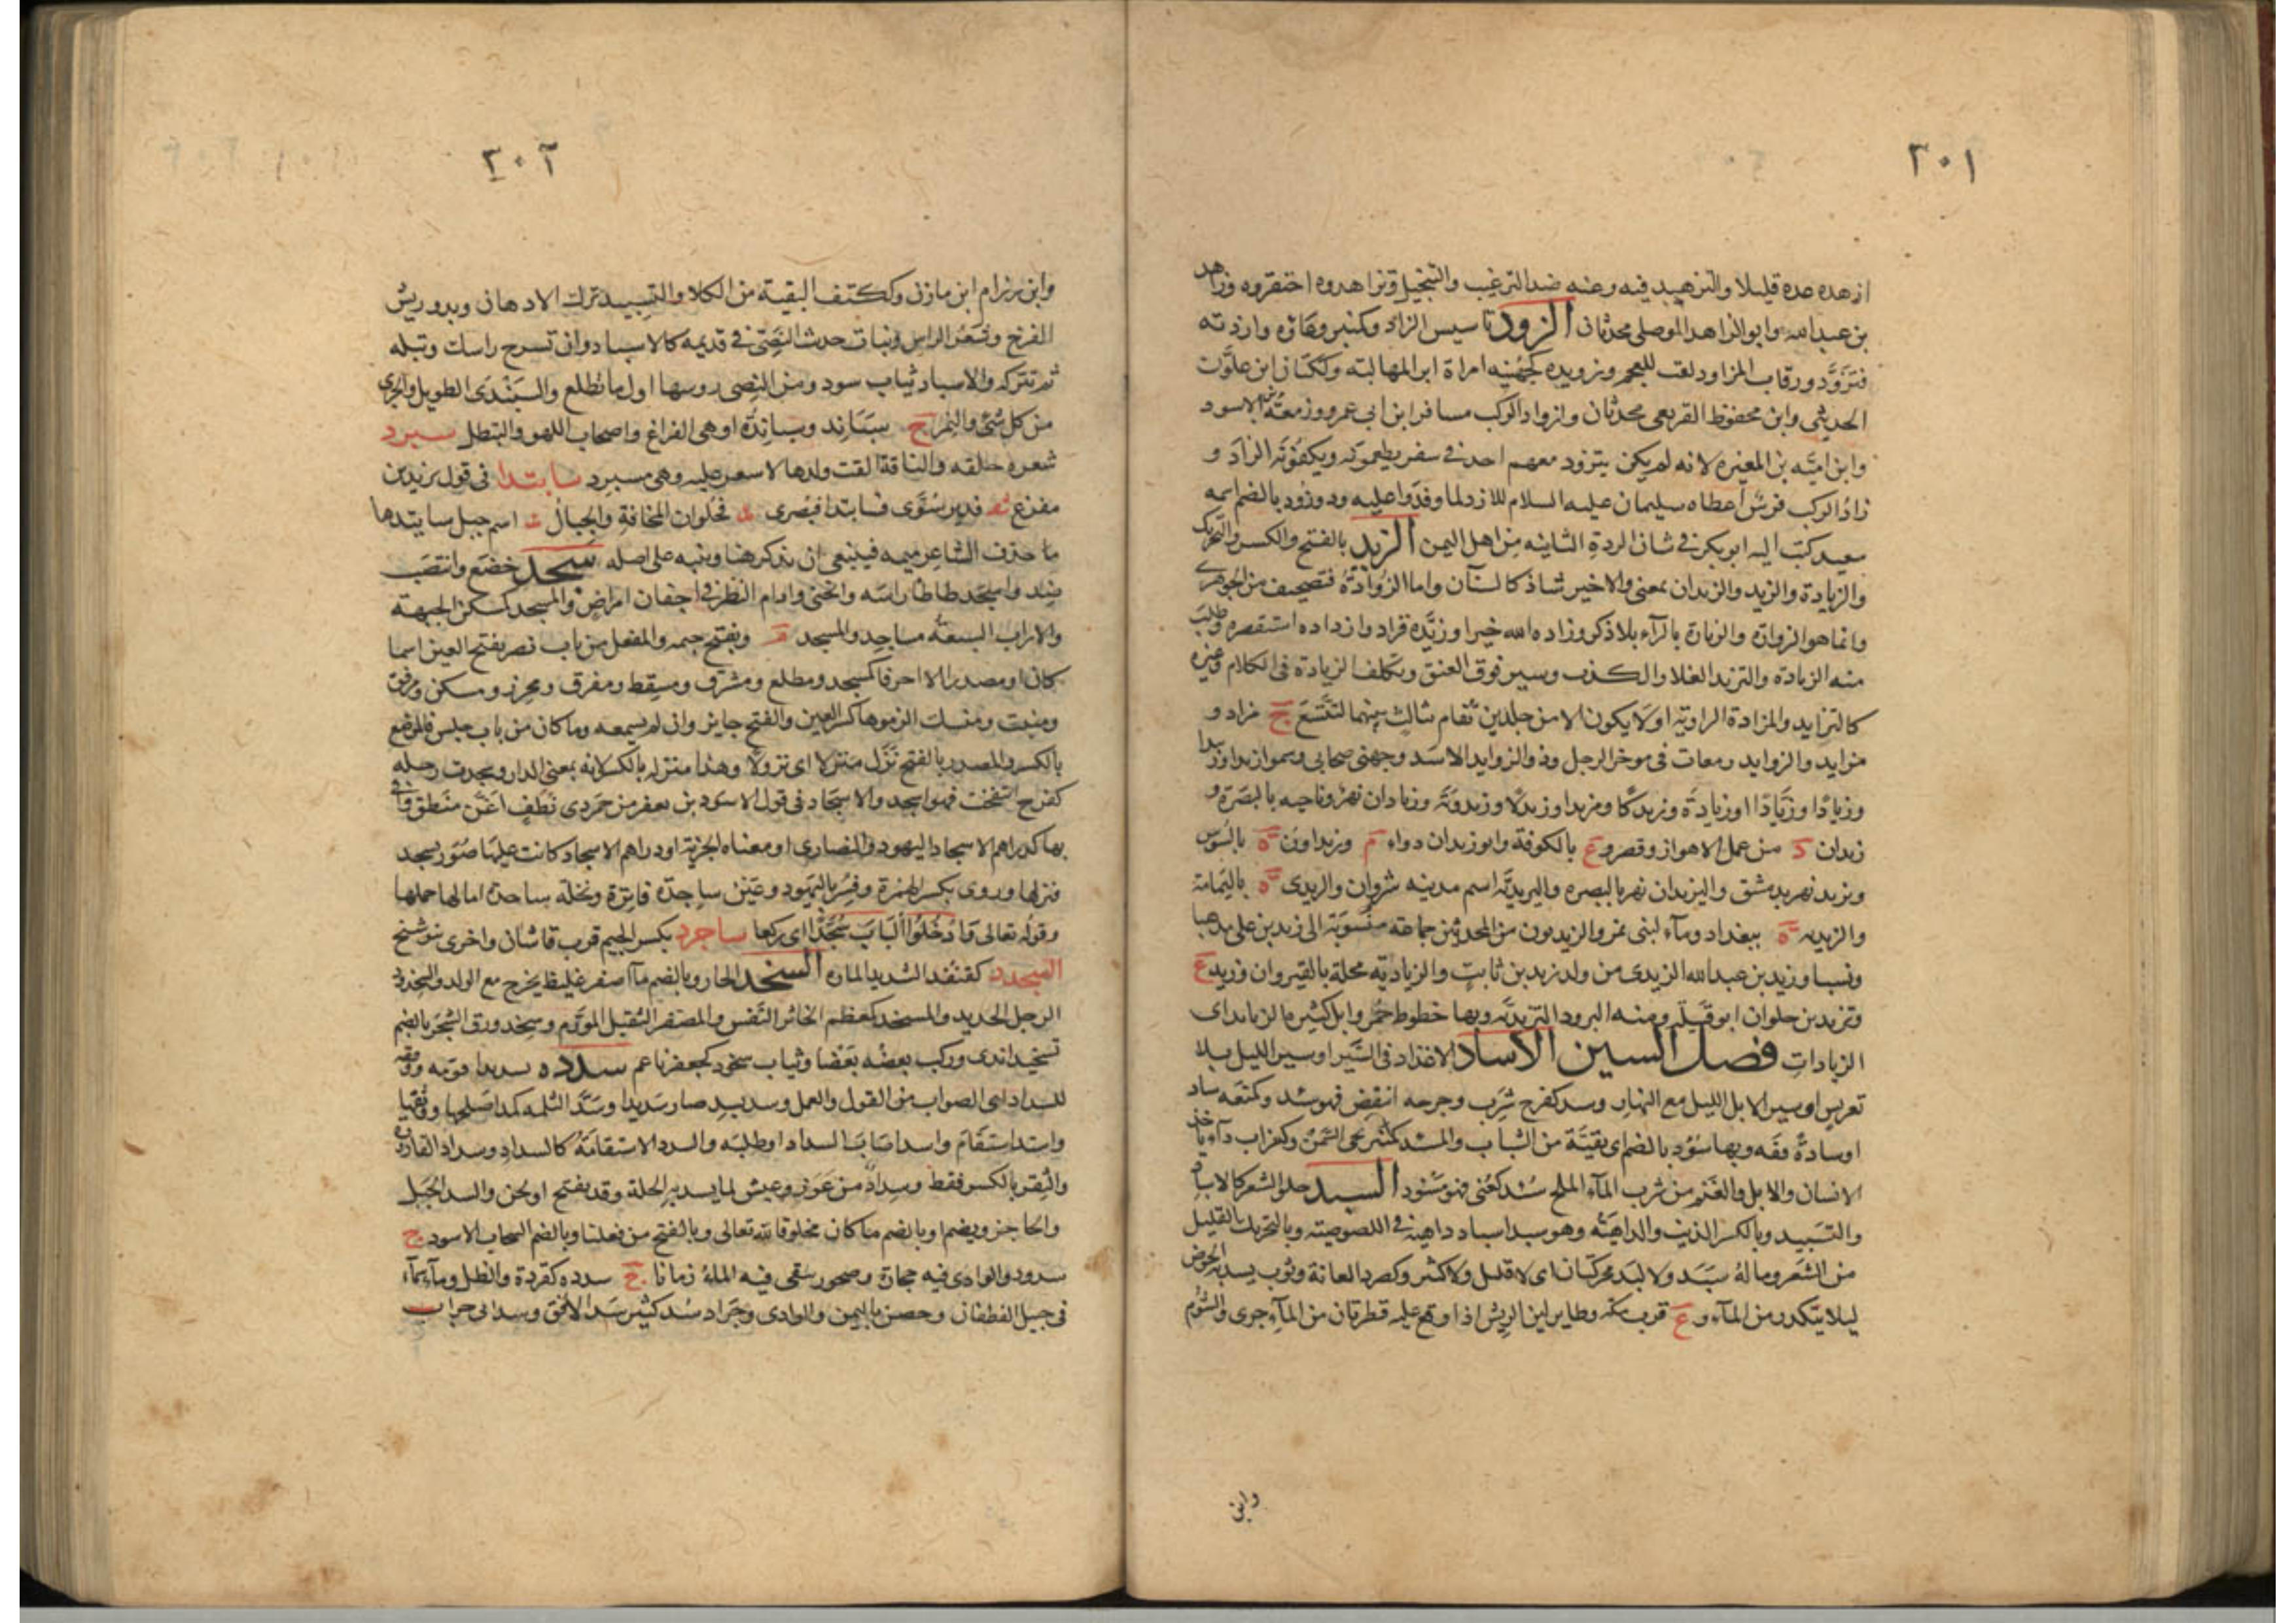 ٣٠١
ازهده عده قليلا والتزهيد فيه وعنه ضد الترغيب والتبخيل وتزاهدوه احتقروه وزاهد
بن عبدالله وابو الزاهد الموصلي محدثان الزود تاسيس الزاد وكمنبر وعاؤه وازدته
فتزود ورقاب المزاود لقب للعجم وزويده كجهينه امراة ابن المهالبة وككتان ابن علوان
الحديثي وابن محفوظ القريعي محدثان وازواد الركب مسافر ابن ابي عمرو وزمعة بن الاسود
وابن اميه بن المغيره لانه لم يكن يتزود معهم احد في سفر يطعمونه ويكفونه الزاد و
زاد الركب فرس اعطاه سليمان عليه السلام للازد لما وفدوا عليه وذو زود بالضم اسمه
سعيد كتب اليه ابو بكر في شان الردة الثانيه من اهل اليمن الزيد بالفتح والكسر والتحريك
والزيادة والزيد والزيدان بمعنى والاخير شاذ كالشنآن واما الزوادة فتصحيف من الجوهري
وانما هو الزوارة والزيارة بالرآء بلا ذكر وزاده الله خيرا وزيده فزاد وازداده استقصره وطلب
منه الزيادة والتزيد الغلا والكذب وسير فوق العنق وتكلف الزيادة في الكلام وغيره
كالتزايد والمزادة الراوية او لا يكون الا من جلدين تفام بثالث بينهما لتتسع ج مزاد و
مزايد والزوايد زمعات في موخر الرجل وذو الزوايد الاسد وجهني صحابي وسموا زيدا وزيدا
وزيادا وزيادا وزيادة وزيدكا ومزيدا وزيدلا وزيدويه وزيادان نهر وناحيه بالبصره و
زيدان د من عمل الاهواز وقصر وع بالكوفة وابو زيدان دواء م وزيداون ة بالسوس
ويزيد نهر بدمشق واليزيدان نهر بالبصره واليزيديه اسم مدينه شروان والزيدي ة باليمامة
والزيديه ة ببغداد وماء لبني نمير والزيديون من المحدثين جماعة منسوبة الى زيد بن علي مذهبا
ونسبا وزيد بن عبدالله الزيدي من ولد زيد بن ثابت والزيادية محلة بالقيروان وزيد ع
وتزيد بن حلوان ابو قبيله ومنه البرود التزيدية وبها خطوط حمر وابل كثير مالزيايد اي
الزيادات فصل السين الاساد الاغذاذ في السير او سير الليل بلا
تعريس او سير الابل الليل مع النهار وسد كفرح شرب وجرحه انتقض فهو سئد وكمنعه ساد
اوسادة فقه وبها سؤد بالضم اي بقية من الشباب والمسئد كمنبر نحى السمن وكغراب داء ياخذ
الانسان والابل والغنم من شرب المآء الملح سئد كعني فهو مسئود السبد حلق الشعر كالاسباد
والتسبيد وبالكسر الذيب والداهيه وهو سبد اسباد داهية في اللصوصية وبالتحريك القليل
من الشعر وماله سبد ولا لبد محركتان اي لا قليل ولا كثير وكصرد العانة وثوب يسد به الحوض
ليلا يتكدر من المآء وع قرب مكة وطاير لين الريش اذا وقع عليه قطرتان من المآء جرى والشوم
وابن
٣٠٢
وابن رزام ابن مازن وككتف البقية من الكلا والتسبيد ترك الادهان وبدو ريش
الفرخ وشعر الراس ونبات حدث النصي في قديمه كالاسباد وان تسرح راسك وتبله
ثم تتركه والاسباد ثياب سود ومن النصي روسها اول ما تطلع والسبندى الطويل والجري
من كل شئ والنمر ج سباند وسباندة او هي الفراغ واصحاب اللهو والتبطل سبرد
شعره حلقه والناقة القت ولدها لا شعر عليه وهي مسبرد ساتيدا في قول يزيد بن
مفرغ شعر فدير سوى فساتيدا فبصرى فحلوان المخافة والجبال اسم جبل ساتيدما
ما حذف الشاعر ميمه فينبغي ان يذكر هنا وينبه على اصله سجد خضع وانتصب
ضد واسجد طاطا راسه وانحنى وادام النظر في اجفان امراض والمسجد كمسكن الجبهة
والاراب السبعه مساجد والمسجد م ويفتح جيمه والمفعل من باب نصر بفتح العين اسما
كان او مصدرا الا احرفا كمسجد ومطلع ومشرق ومسقط ومفرق ومجزر ومسكن ومرفق
ومنبت ومنسك الزموها كسر العين والفتح جايز وان لم يسمعه وما كان من باب جلس فالموضع
بالكسر والمصدر بالفتح نزل منزلا اي نزولا وهذا منزله بالكسر لانه بمعنى الدار وسجدت رجله
كفرح انتفخت فهو اسجد والاسجاد في قول الاسود بن يعفر من خمر ذي نطف اغن منطق وافى
بها كدراهم الاسجاد اليهود والنصارى او معناه الجزية او دراهم الاسجاد كانت عليها صور يسجد
فنزلها وروى بكسر الهمزة وفسر باليهود وعين ساجدة فاترة ونخلة ساجدة امالها حملها
وقوله تعالى وادخلوا الباب سجدا اي ركعا ساجرد بكسر الجيم قرب قاشان واخرى ببوشنج
السجدد كقنفذ الشديد المارد السخد الحار وبالضم مآء اصفر غليظ يخرج مع الولد والسخدد
الرجل الحديد والمسخد كمعظم الخاثر النفس والمصفر الثقيل المورم وسخد ورق الشجر بالضم
تسخيدا ندي وركب بعضه بعضا وثياب سخود كجعفر ناعم سدده سديدا قومه ووفقه
للسداد اي الصواب من القول والعمل وسد يسد صار سديدا وسد الثلمة كمد اصلحها ووثقها
واستد استقام واسد اصاب السداد او طلبه والسدد الاستقامة كالسداد وسداد القارورة
والثغر بالكسر فقط وسداد من عوز وعيش لما يسد به الخلة وقد يفتح او لحن والسد الجبل
والحاجز ويضم او بالضم ما كان مخلوقا لله تعالى وبالفتح من فعلنا وبالضم السحاب الاسود ج
سدود والوادي فيه حجارة وصخور يبقى فيه الماء زمانا ج سدده كقردة والظل وماء سماء
في جبل لغطفان وحصن باليمن والوادي وجراد سد كثير سد الافق وسد ابي جراب